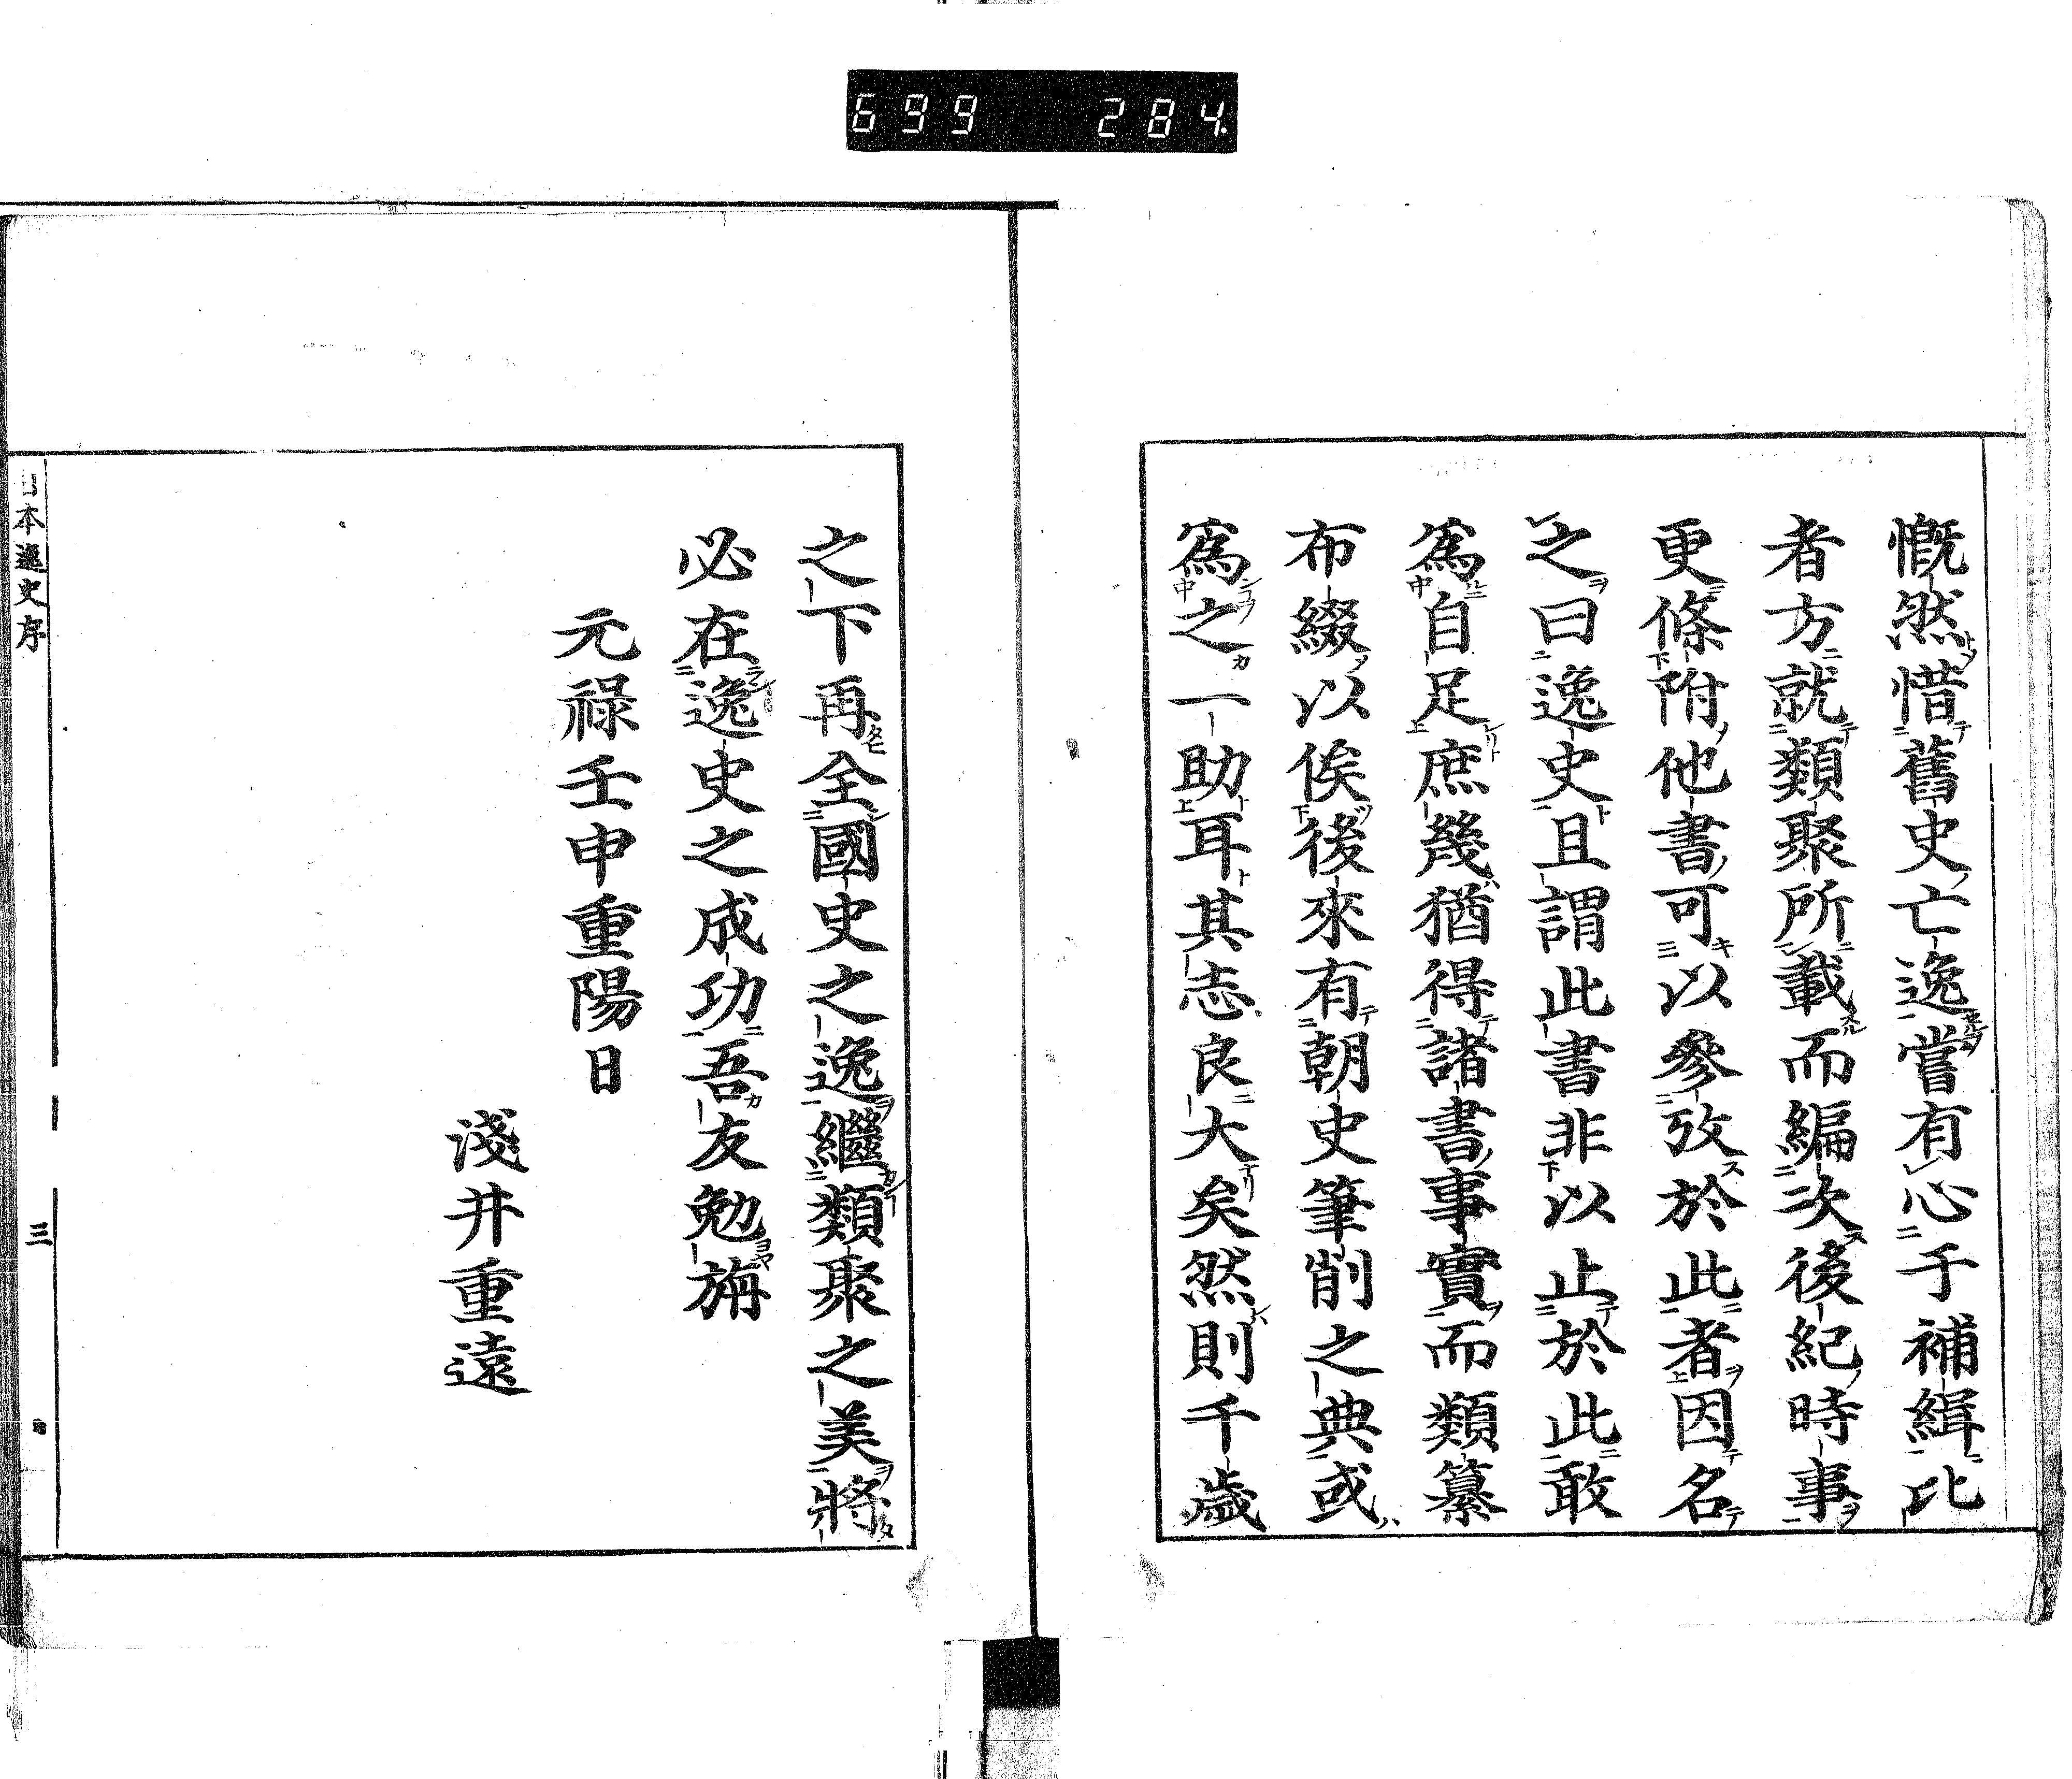 699 284
慨然惜舊史亡逸嘗有心于補緝比
者方就類聚所載而編次後紀時事
更條附他書可以參攷於此者因名
之曰逸史且謂此書非以止於此敢
爲自足庶幾猶得諸書事實而類纂
布綴以俟後來有朝史筆削之典或
爲之一助耳其志良大矣然則千歲
之下再全國史之逸繼類聚之美將
必在逸史之成功吾友勉旃
元祿壬申重陽日
淺井重遠
日本逸史序
三